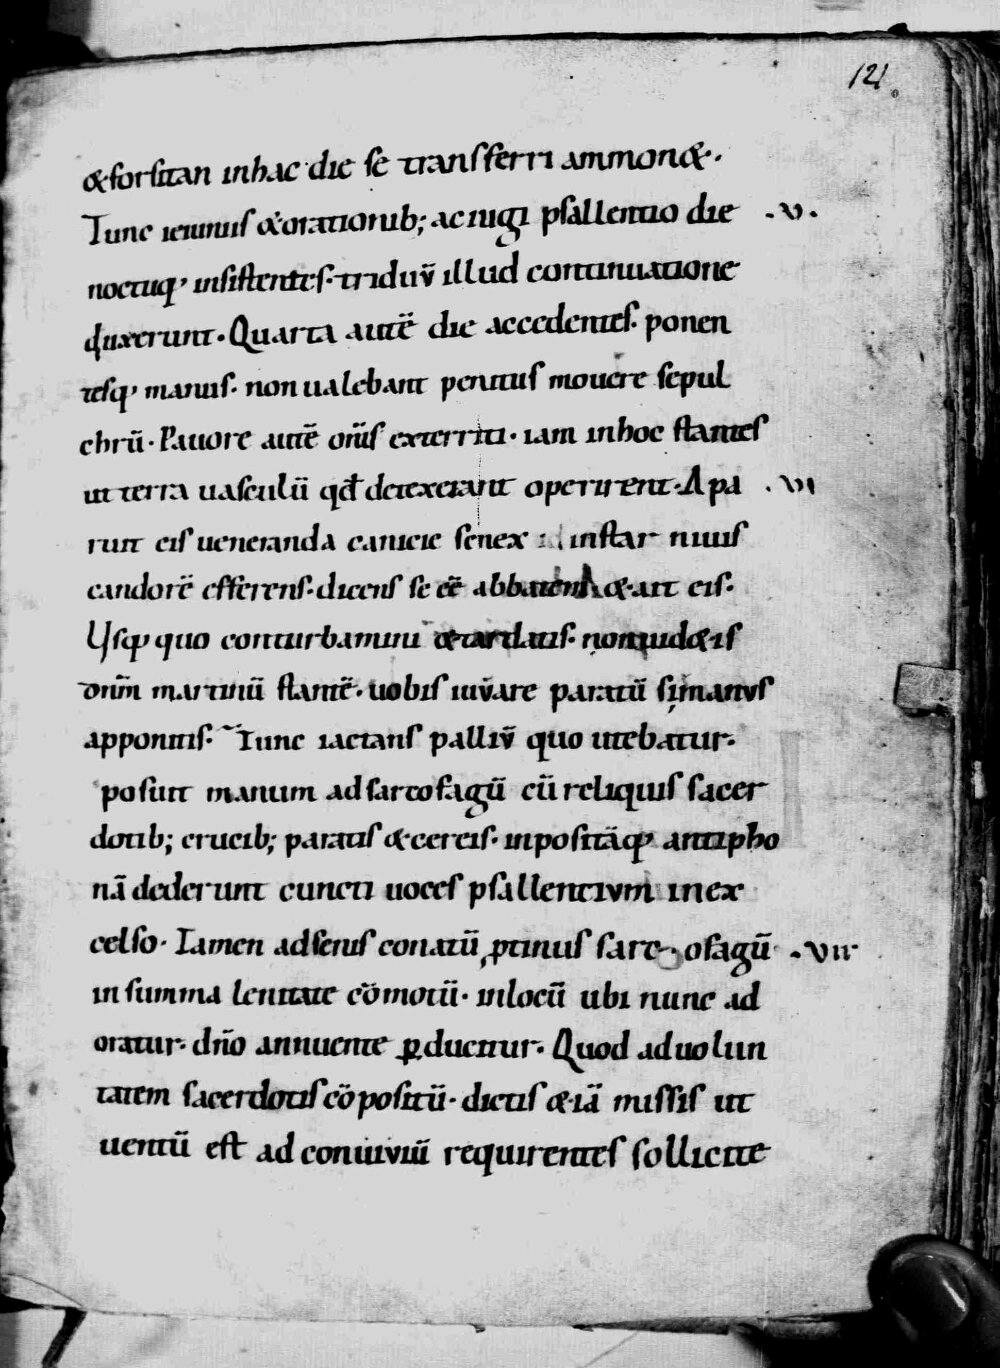 121
&forsitan inhac die se transferri ammon&.
Tunc ieiuniis &orationib; ac iugi psallentio die .v.
noctuq; insistentes. triduū illud continuatione
duxerunt. Quarta autē die accedentes. ponen
tesq; manus. non ualebant penitus mouere sepul
chrū. Pauore autē om̄s exterriti. iam inhoc stantes
ut terra uasculū qđ detexerant operirent. Apa .vi
runt eis ueneranda canicie senex instar niuis
candorē efferens. dicens se eē abbatem & ait eis.
Usq; quo conturbamini &tardatis. nonuid&is
dn̄m martinū stantē. uobis iuvare paratū si manus
apponitis. Tunc iactans palliū quo utebatur.
posuit manum adsarcofagū cū reliquis sacer
dotib; crucib; paratis &cereis. inpositāq; antipho
nā dederunt cuncti uoces psallentium inex
celso. Tamen adsenis conatū ꝓtinus sarc osagū .vii
in summa lenitate cōmotū. inlocū ubi nunc ad
oratur. dn̄o annuente ꝑducitur. Quod aduolun
tatem sacerdotis cōpositū. dictis &iā missis ut
uentū est ad conuiuiū requirentes sollicite